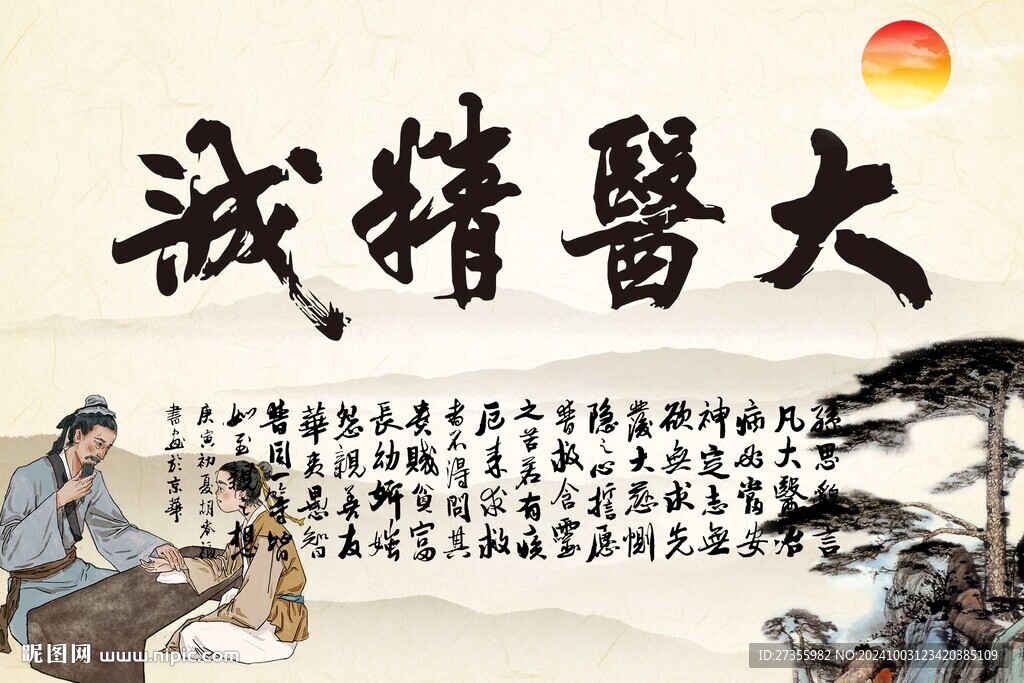 大醫精誠
孫思邈言
凡大醫治
病必當安
神定志無
欲無求先
發大慈惻
隱之心誓愿
普救含靈
之苦若有疾
厄來求救
者不得問其
貴賤貧富
長幼妍媸
怨親善友
華夷愚智
普同一等皆
如至親想
庚寅初夏胡
書於京華
昵图网 www.nipic.com
ID:27355982 NO:20241003123420385109